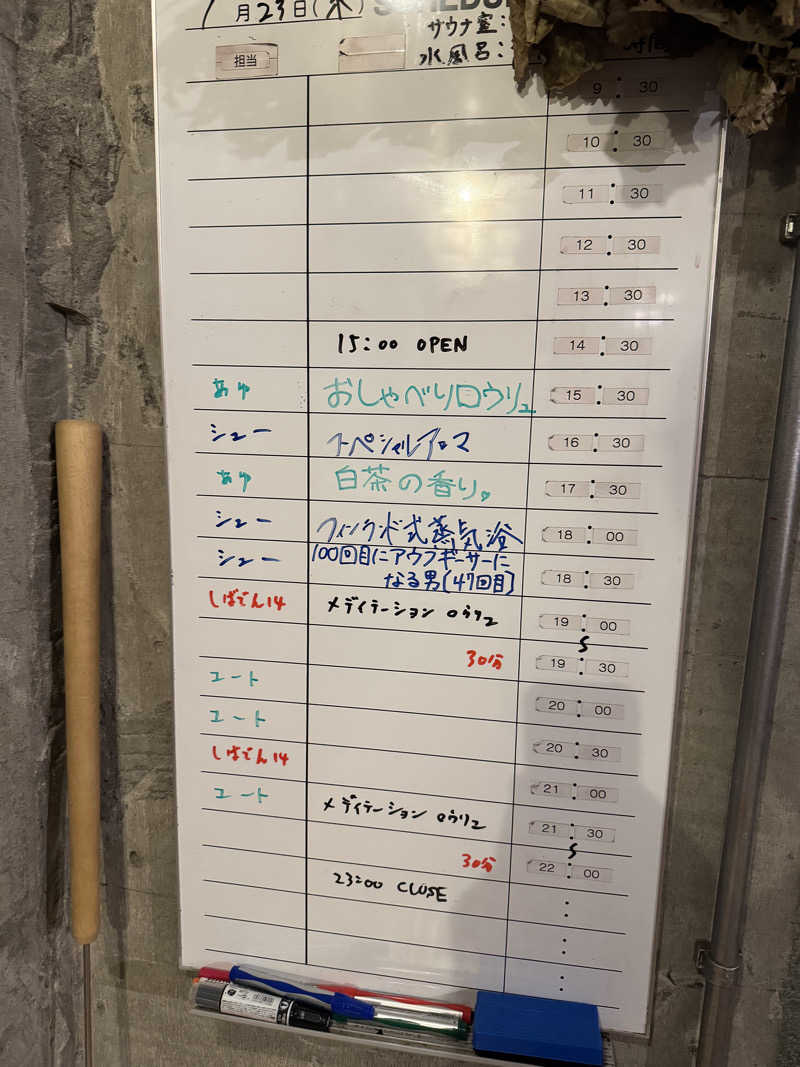 1月23日(木) SCHEDU
サウナ室:
担当
水風呂:
9 30
10:30
11:30
12:30
13:30
15:00 OPEN 14:30
あゆ おしゃべりロウリュ 15:30
シュー スペシャルアロマ 16:30
あゆ 白茶の香り。 17:30
シュー フィンランド式蒸気浴 18:00
シュー 100回目にアウフギーサーに
なる男(47回目) 18:30
しばでん14 メディテーション ロウリュ 19:00
30分 19:30
ユート 20:00
ユート 20:30
しばでん14 21:00
ユート メディテーション ロウリュ 21:30
30分 22:00
23:00 CLOSE :
:
: